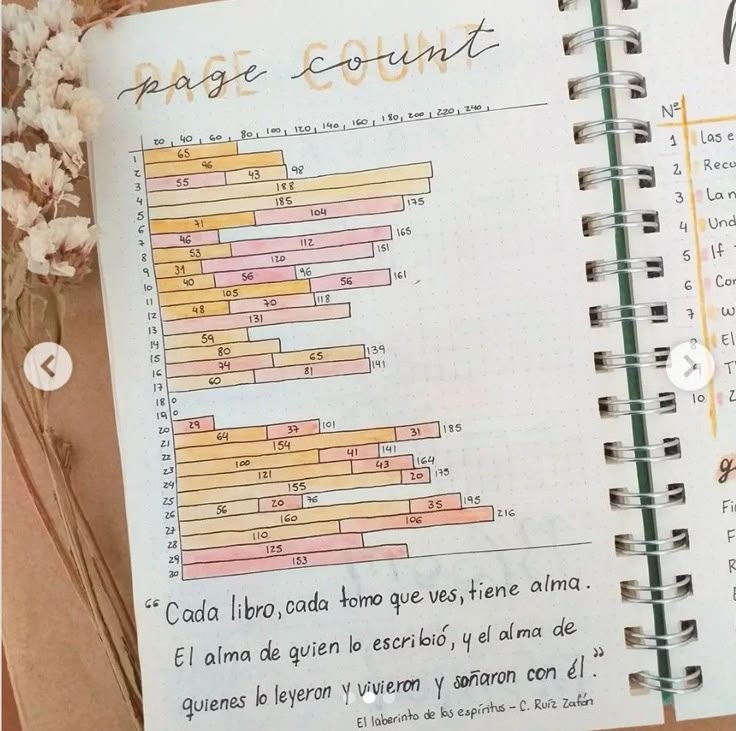 PAGE COUNT
page count
20 40 60 80 100 120 140 160 180 200 220 240
1 65
2 96
3 55 43 98
4 188
5 185
6 71 104 175
7 46
8 53 112 165
9 31 120 151
10 40 56 96
11 105 56 161
12 48 70 118
13 131
14 59
15 80
16 74 65 139
17 60 81 141
18 0
19 0
20 29
21 64 37 101
22 154 31 185
23 100 41 141
24 121 43 164
25 155 20 175
26 56 20 76
27 160 35 195
28 110 106 216
29 125
30 153
“Cada libro, cada tomo que ves, tiene alma.
El alma de quien lo escribió, y el alma de
quienes lo leyeron y vivieron y soñaron con él.”
El laberinto de los espíritus - C. Ruiz Zafón
Nº
1 las e
2 Recu
3 La n
4 Und
5 If
6 Con
7 W
8 El
9 T
10 Z
g
Fi
F
R